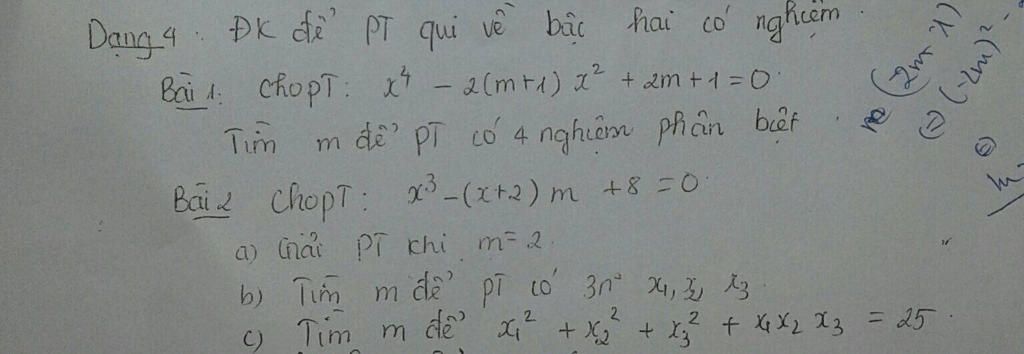 Dạng 4. ĐK để PT qui về bậc hai có nghiệm.
Bài 1: Cho pT: x⁴ - 2(m+1) x² + 2m + 1 = 0.
Tìm m để PT có 4 nghiệm phân biệt.
Bài 2 Cho pT: x³ - (x+2) m + 8 = 0.
a) Giải PT khi m = 2.
b) Tìm m để pT có 3n° x₁, x₂, x₃.
c) Tìm m để x₁² + x₂² + x₃² + x₁x₂ x₃ = 25.
(2m+1)
(-2m)²